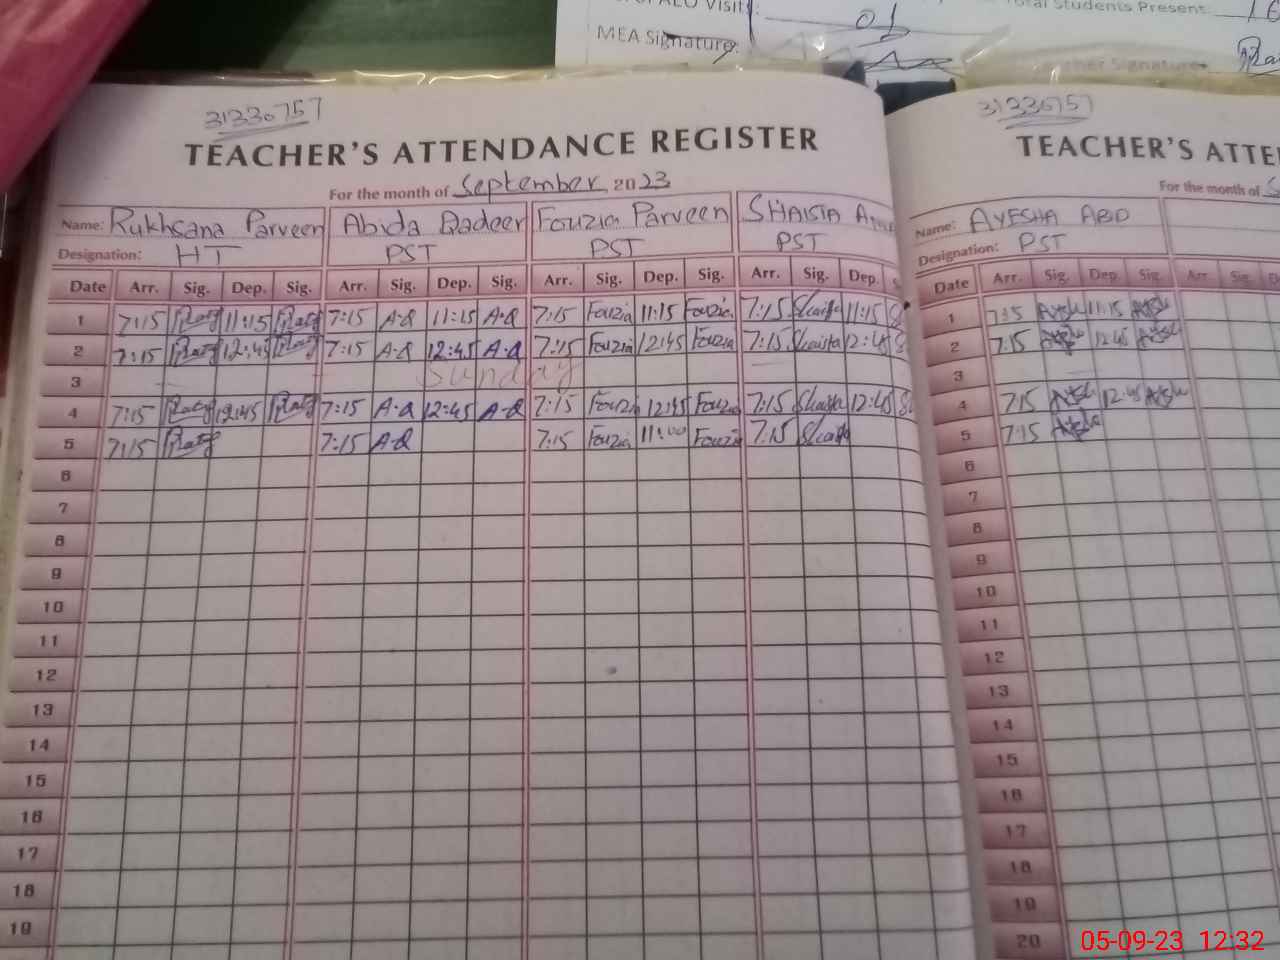 VISIT: 01 Total Students Present:
MEA Signature: Signature
31330757
TEACHER'S ATTENDANCE REGISTER
For the month of September 2023
Name: Rukhsana Parveen Abida Qadeer Fouzia Parveen SHAISTA
Designation: HT PST PST PST
Date Arr. Sig. Dep. Sig. Arr. Sig. Dep. Sig. Arr. Sig. Dep. Sig. Arr. Sig. Dep.
1 7:15 11:15 7:15 A-Q 11:15 A-Q 7:15 Fouzia 11:15 Fouzia 7:15 Shaista 11:15
2 7:15 12:45 7:15 A-Q 12:45 A-Q 7:15 Fouzia 12:45 Fouzia 7:15 Shaista 12:45
3 Sunday
4 7:15 12:45 7:15 A-Q 12:45 A-Q 7:15 Fouzia 12:45 Fouzia 7:15 Shaista 12:45
5 7:15 7:15 A-Q 7:15 Fouzia 11:00 Fouzia 7:15 Shaista
6
7
8
9
10
11
12
13
14
15
16
17
18
19
31330757
TEACHER'S ATTE
For the month of
Name: AYESHA ABID
Designation: PST
Date Arr. Sig. Dep. Sig. Arr. Sig.
1 7:15 11:15
2 7:15 12:45
3
4 7:15 12:45
5 7:15
6
7
8
9
10
11
12
13
14
15
16
17
18
19
20
05-09-23 12:32